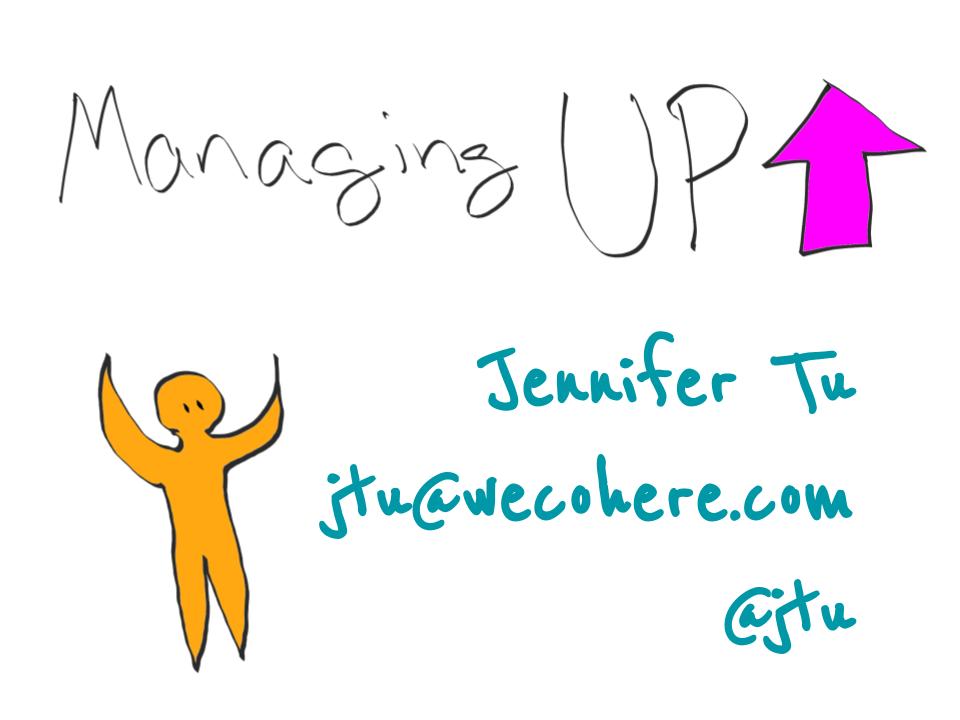 Managing UP
Jennifer Tu
jtu@wecohere.com
@jtu